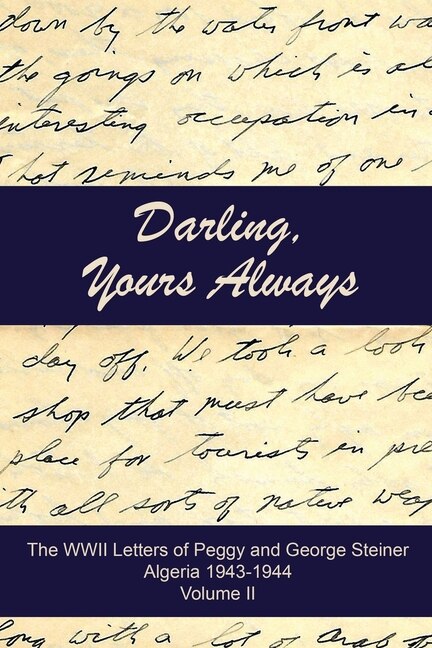 down by the water front wa
the goings on which is al
interesting occupation in
hot reminds me of one
Darling,
Yours Always
day off. We took a look
shop that must have bee
place for tourists in pre
ith all sorts of native weap
The WWII Letters of Peggy and George Steiner
Algeria 1943-1944
Volume II
long with a lot of Arab